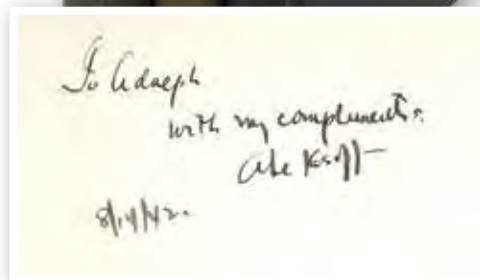 To Adolph
with my compliments.
Abe Kroff
8/14/42.